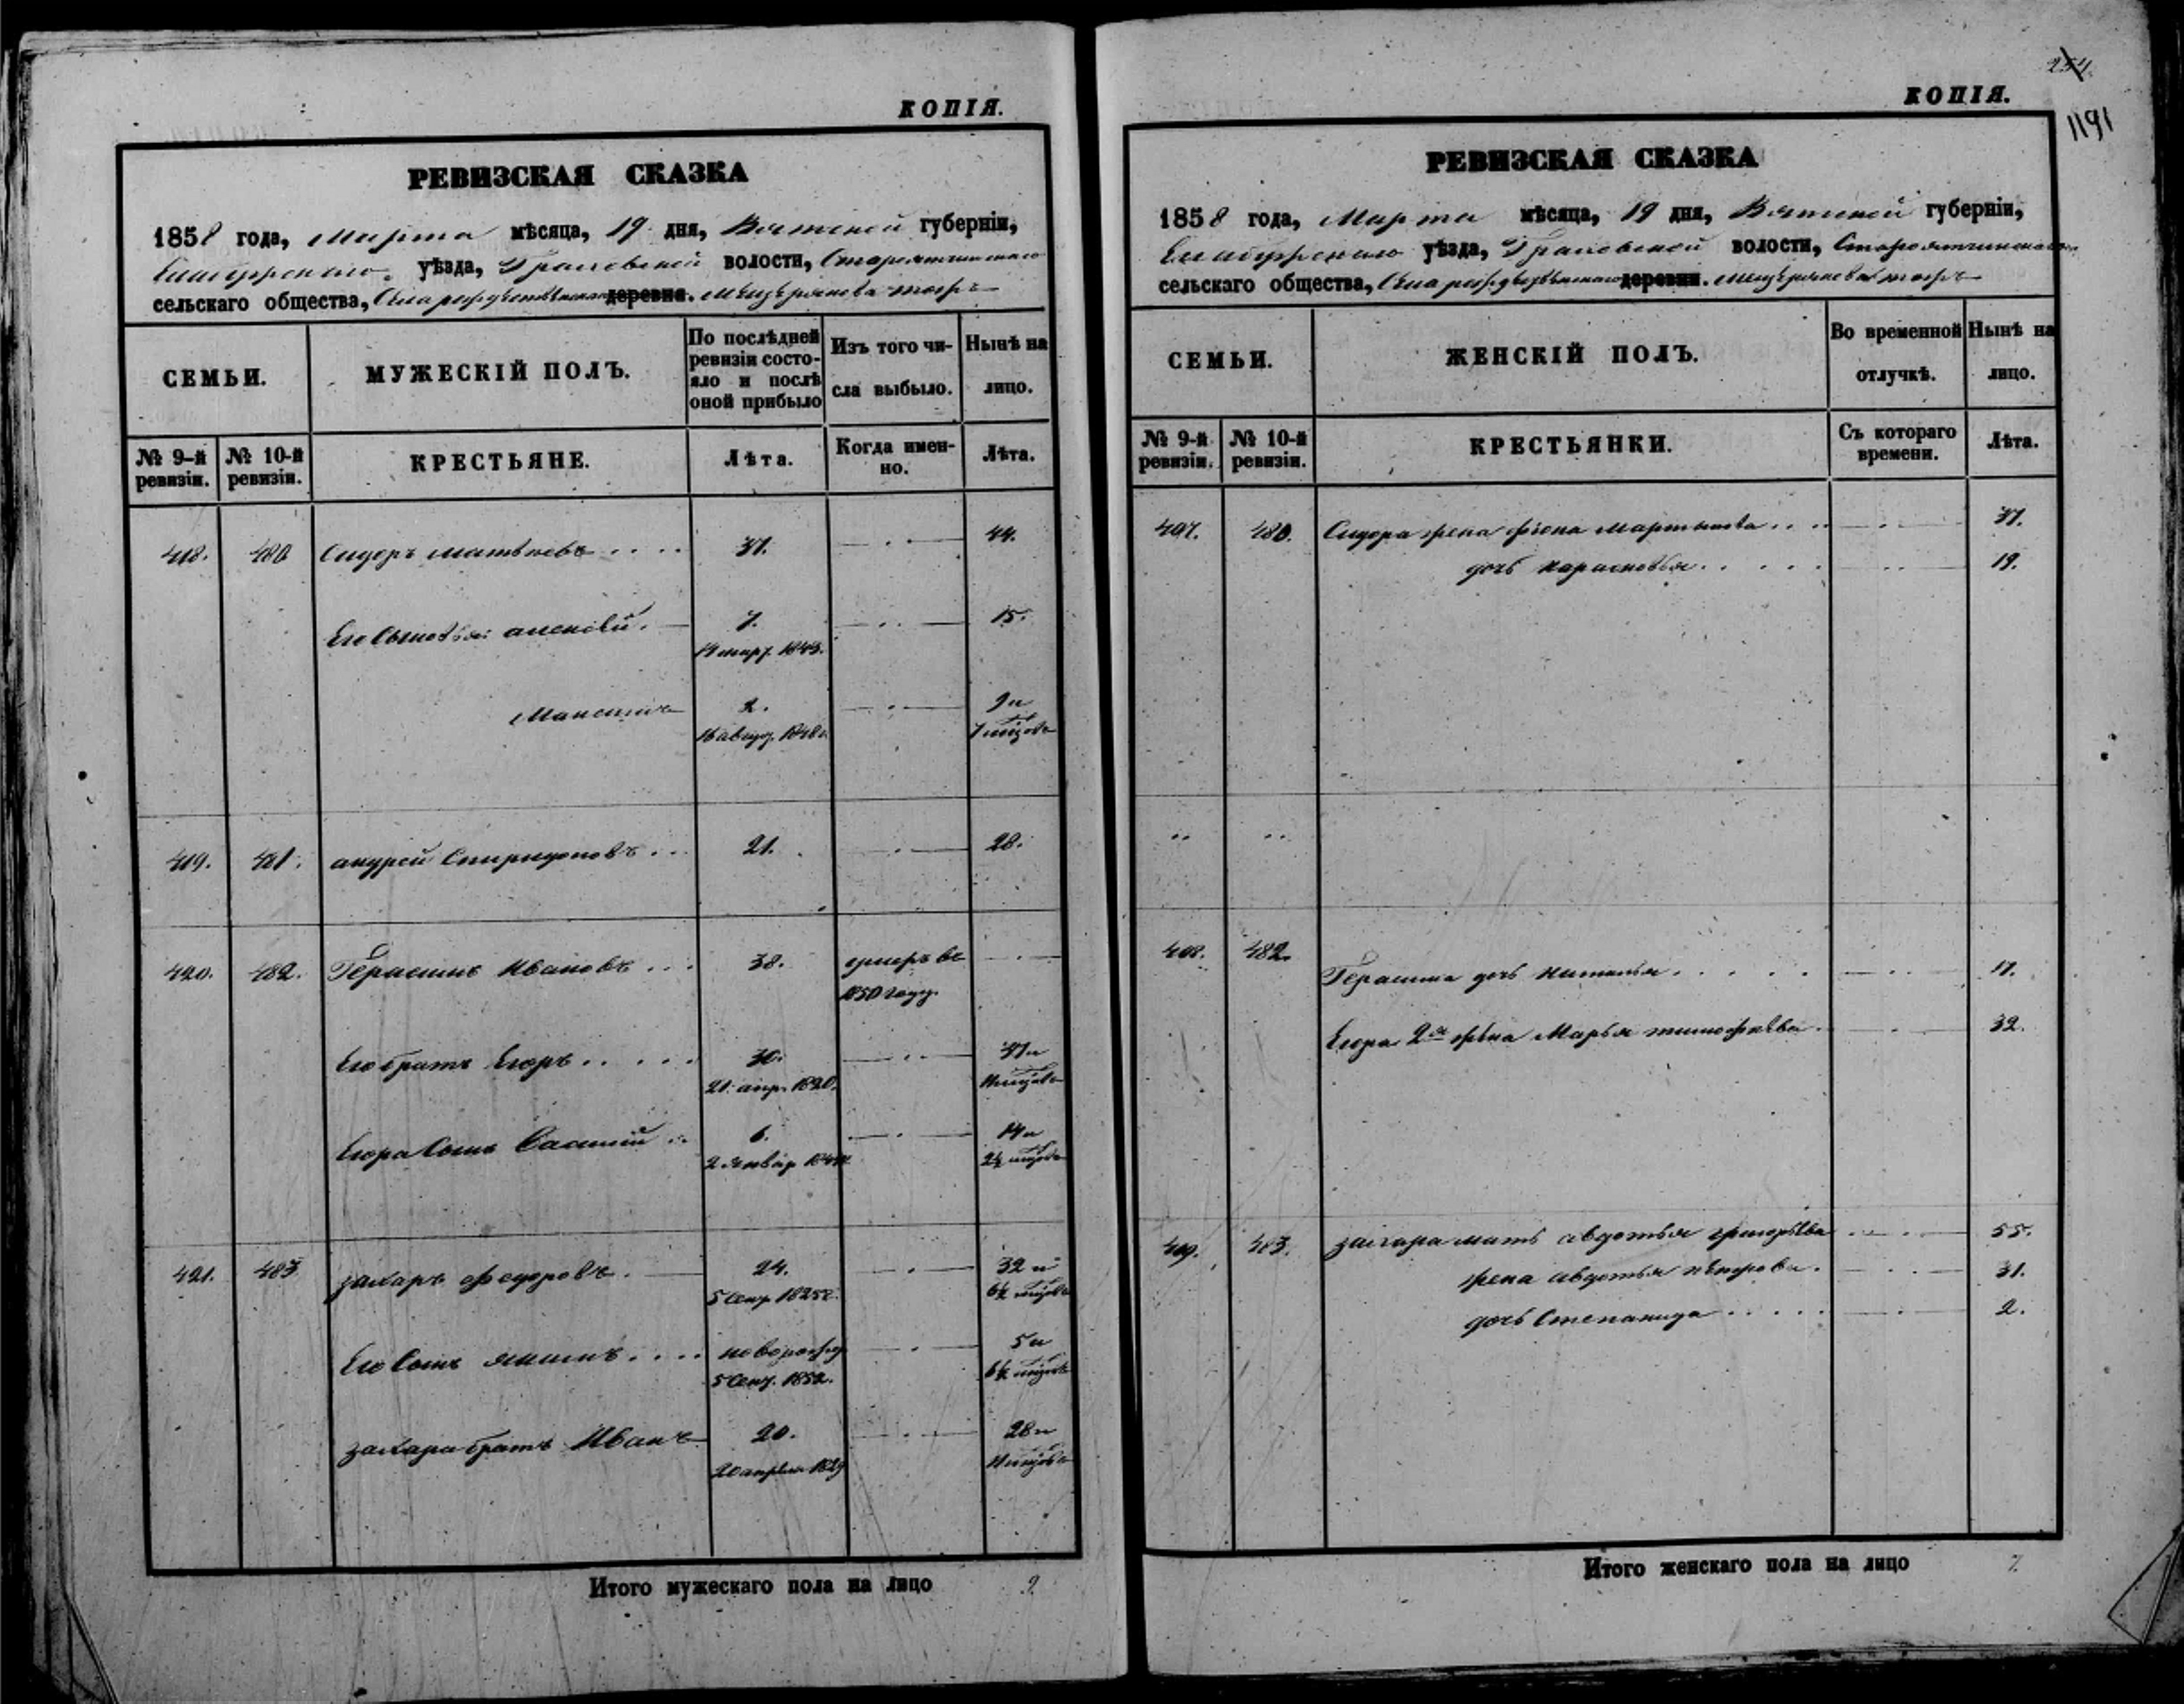 КОПІЯ.
РЕВИЗСКАЯ СКАЗКА
1858 года, Марта мѣсяца, 19 дня, Вятской губерніи,
уѣзда, Граховской волости,
сельскаго общества, Села деревни.
СЕМЬИ.
МУЖЕСКІЙ ПОЛЪ.
По послѣдней ревизіи состо-
яло и послѣ
оной прибыло
Изъ того чи-
сла выбыло.
Нынѣ на
лицо.
№ 9-й ревизіи.
№ 10-й ревизіи.
КРЕСТЬЯНЕ.
Лѣта.
Когда имен-
но.
Лѣта.
418. 480 Сидоръ 37. 44.
Его Сыновья: алексѣй. 7. 15.
19 мар. 1843.
Максимъ 1. 9 и
16 авгус. 1848 7 мѣсяцовъ
419. 481. андрей Спиридоновъ 21. 28.
420. 482. Герасимъ Ивановъ 38. умеръ въ
1850 году.
Его братъ Егоръ 30. 37 и
21. апр. 1820. 11 мѣсяцовъ
Егора Сынъ Василій 6. 14 и
2 Январ 1844 2½ мѣсяцовъ
421. 483 захаръ Федоровъ. 24. 32 и
5 Сент. 1825 6½ мѣсяцовъ
Его Сынъ якимъ новорожд 5 и
5 Сент. 1852. 6½ мѣсяцовъ
захара братъ Иванъ 20. 28 и
20 апрѣля 1829 11 мѣсяцовъ
Итого мужескаго пола на лицо 9.
254
1191
КОПІЯ.
РЕВИЗСКАЯ СКАЗКА
1858 года, Марта мѣсяца, 19 дня, Вятской губерніи,
уѣзда, Граховской волости,
сельскаго общества, Села деревни.
СЕМЬИ.
ЖЕНСКІЙ ПОЛЪ.
Во временной
отлучкѣ.
Нынѣ на
лицо.
№ 9-й ревизіи.
№ 10-й ревизіи.
КРЕСТЬЯНКИ.
Съ котораго
времени.
Лѣта.
407. 480. Сидора жена Мартынова 37.
дочь 19.
408. 482. Герасима дочь Наталья 17.
Егора 2я жена Марья тимофѣева 32.
409. 483. захара мать авдотья григорьева 55.
жена авдотья петрова. 31.
дочь Степанида 2.
Итого женскаго пола на лицо 7.